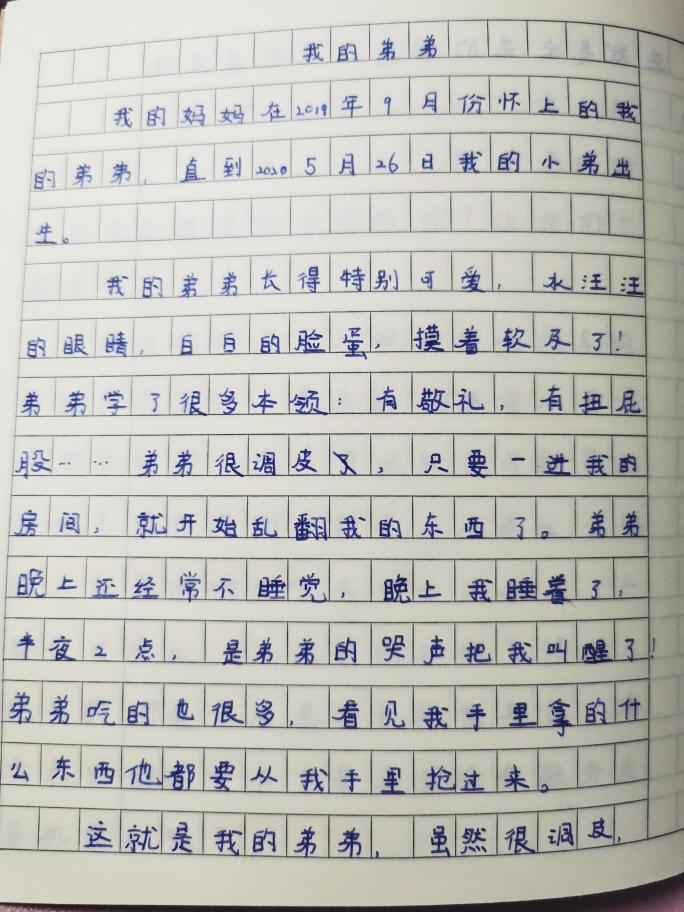 我的弟弟
我的妈妈在2019年9月份怀上的我
的弟弟，直到2020 5月26日我的小弟出
生。
我的弟弟长得特别可爱，水汪汪
的眼睛，白白的脸蛋，摸着软及了！
弟弟学了很多本领：有敬礼，有扭屁
股……弟弟很调皮了，只要一进我的
房间，就开始乱翻我的东西了。弟弟
晚上还经常不睡觉，晚上我睡着了，
半夜2点，是弟弟的哭声把我叫醒了！
弟弟吃的也很多，看见我手里拿的什
么东西他都要从我手里抢过来。
这就是我的弟弟，虽然很调皮，